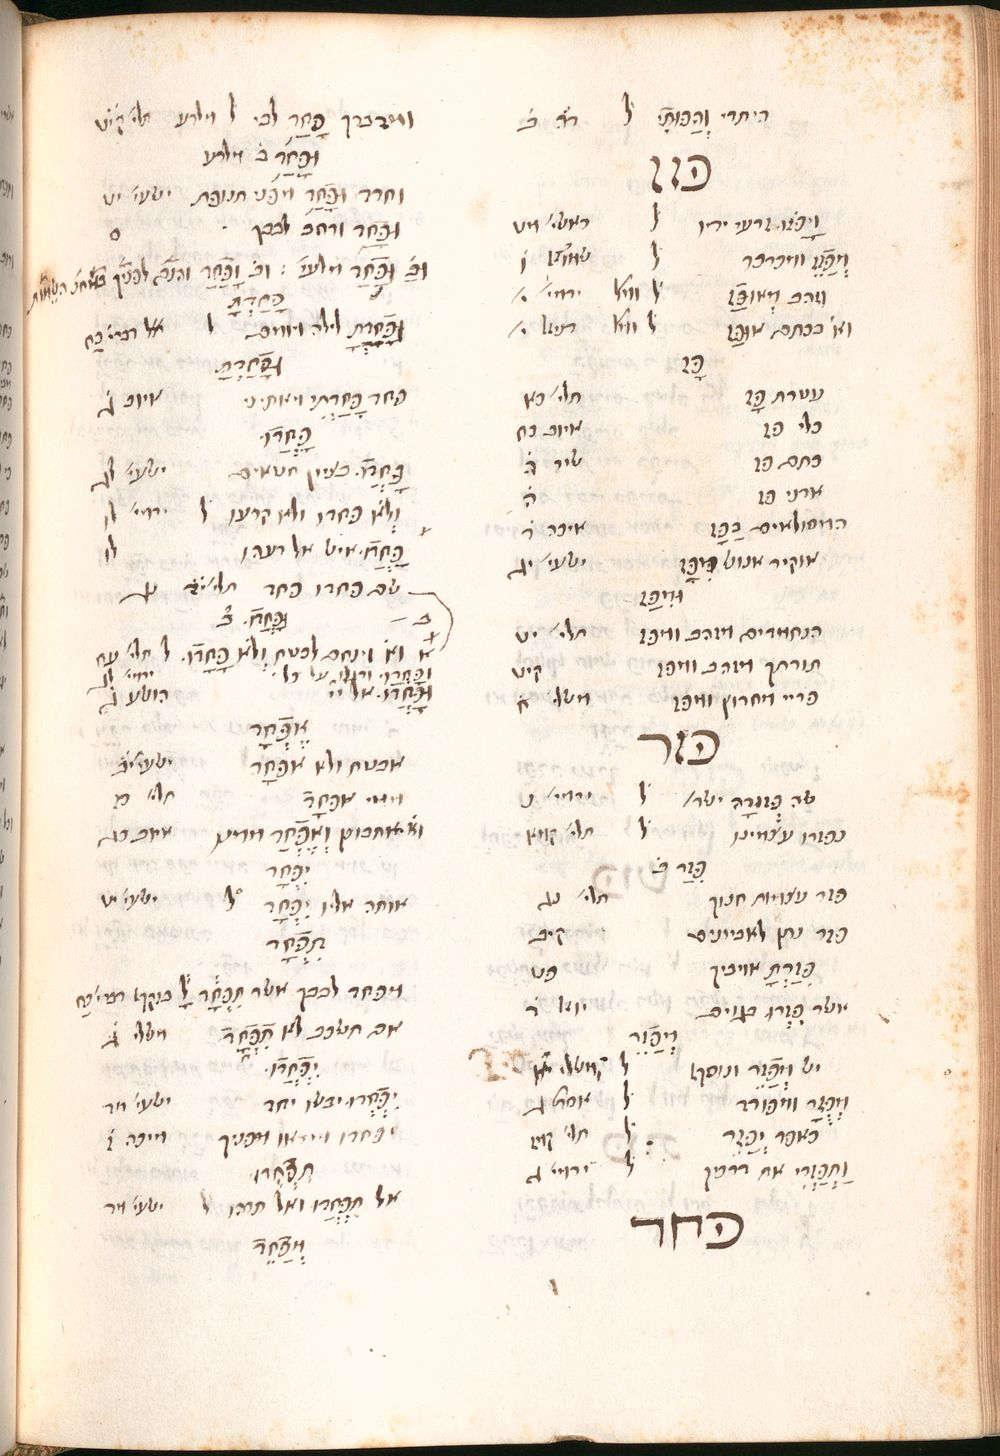 היתרי וְהַפּוּתִי ל רה ב
פזז
וַיָּפֹזּוּ זרעי ידיו ל ראשי׳ מט
מְפַזֵּז ומכרכר ל שמוא ו
זהב מְאוּפָז ל ומל ירמי׳ י
וא׳ בכתם אוּפָז ל ומל דניאל י
פָּז
עטרת פָּז תלי׳ כא
כלי פז איוב כח
כתם פז שיר ה
אדני פז ה
המסולאים בַּפָּז איכה ד
אוקיר אנוש מִפָּז ישעי׳ יג
וּמִפַּז
הנחמדים מזהב ומפז תלי׳ יט
תורתך מזהב ומפז קיט
פריי מחרוץ ומפז משלי ח
פזר
שה פְזוּרָה ישר׳ ל ירמי׳ נ
נפזרו עצמינו ל תלי׳ קמא
פִּזַּר ב
פזר עצמות חונך תלי׳ נג
פזר נתן לאביונים קיב
פִּזַּרְתָּ אויביך פט
אשר פִּזְּרוּ בגוים יואל ד
מְפַזֵּר
יש מְפַזֵּר ונוסף ל משלי יא
מְפֻזָּר ומפורד ל אסתר ג
כאפר יְפַזֵּר ל תלי׳ קמז
וַתְּפַזְּרִי את דרכיך ל ירמי׳ ג
פחד
ומדברך פָּחַד לבי ל מלרע תלי׳ קיט
וּפָחַד ב מלרע
וחרד וּפָחַד מפני תנופת ישעי׳ יט
וּפָחַד ורחב לבבך ס
פָּחַדְתָּ
וּפָחַדְתָּ לילה ויומם ל אל׳ דברי׳ כח
וּפָחַדְתָּ
פחד פָּחַדְתִּי ויאתיני איוב ג
פָּחֲדוּ
פָּחֲדוּ בציון חטאים ישעי׳ לג
וְלֹא פחדו ולא קרעו ל ירמי׳ לו
פָּחֲדוּ איש אל רעהו לו
שם פחדו פחד תלי׳ יד נג
וּפָחֲדוּ ב
וא׳ וינחם לבטח וְלֹא פָחָדוּ ל תלי׳ עח
וּפָחֲדוּ ורגזו על כל ירמי׳ לג
וּפָחֲדוּ אל יי הושע ג
אֶפְחָד
אבטח ולא אפחד ישעי׳ יב
ממי אפחד תלי׳ כז
וא׳ אתבונן וְאֶפְחַד ממנו איוב כג
יִפְחָד
אותה אליו יִפְחָד ל ישעי׳ יט
תִפְחָד
מפחד לבבך אשר תִפְחָד ל בנקו׳ דברי׳ כח
אם תשכב לא תִפְחָד משלי ג
יִפְחֲדוּ
יִפְחֲדוּ יבשו יחד ישעי׳ מד
יפחדו וייראו מפניך מיכה ז
תִּפְחֲדוּ
אל תִּפְחֲדוּ ואל תרהו ל ישעי׳ מד
מְפַחֵד